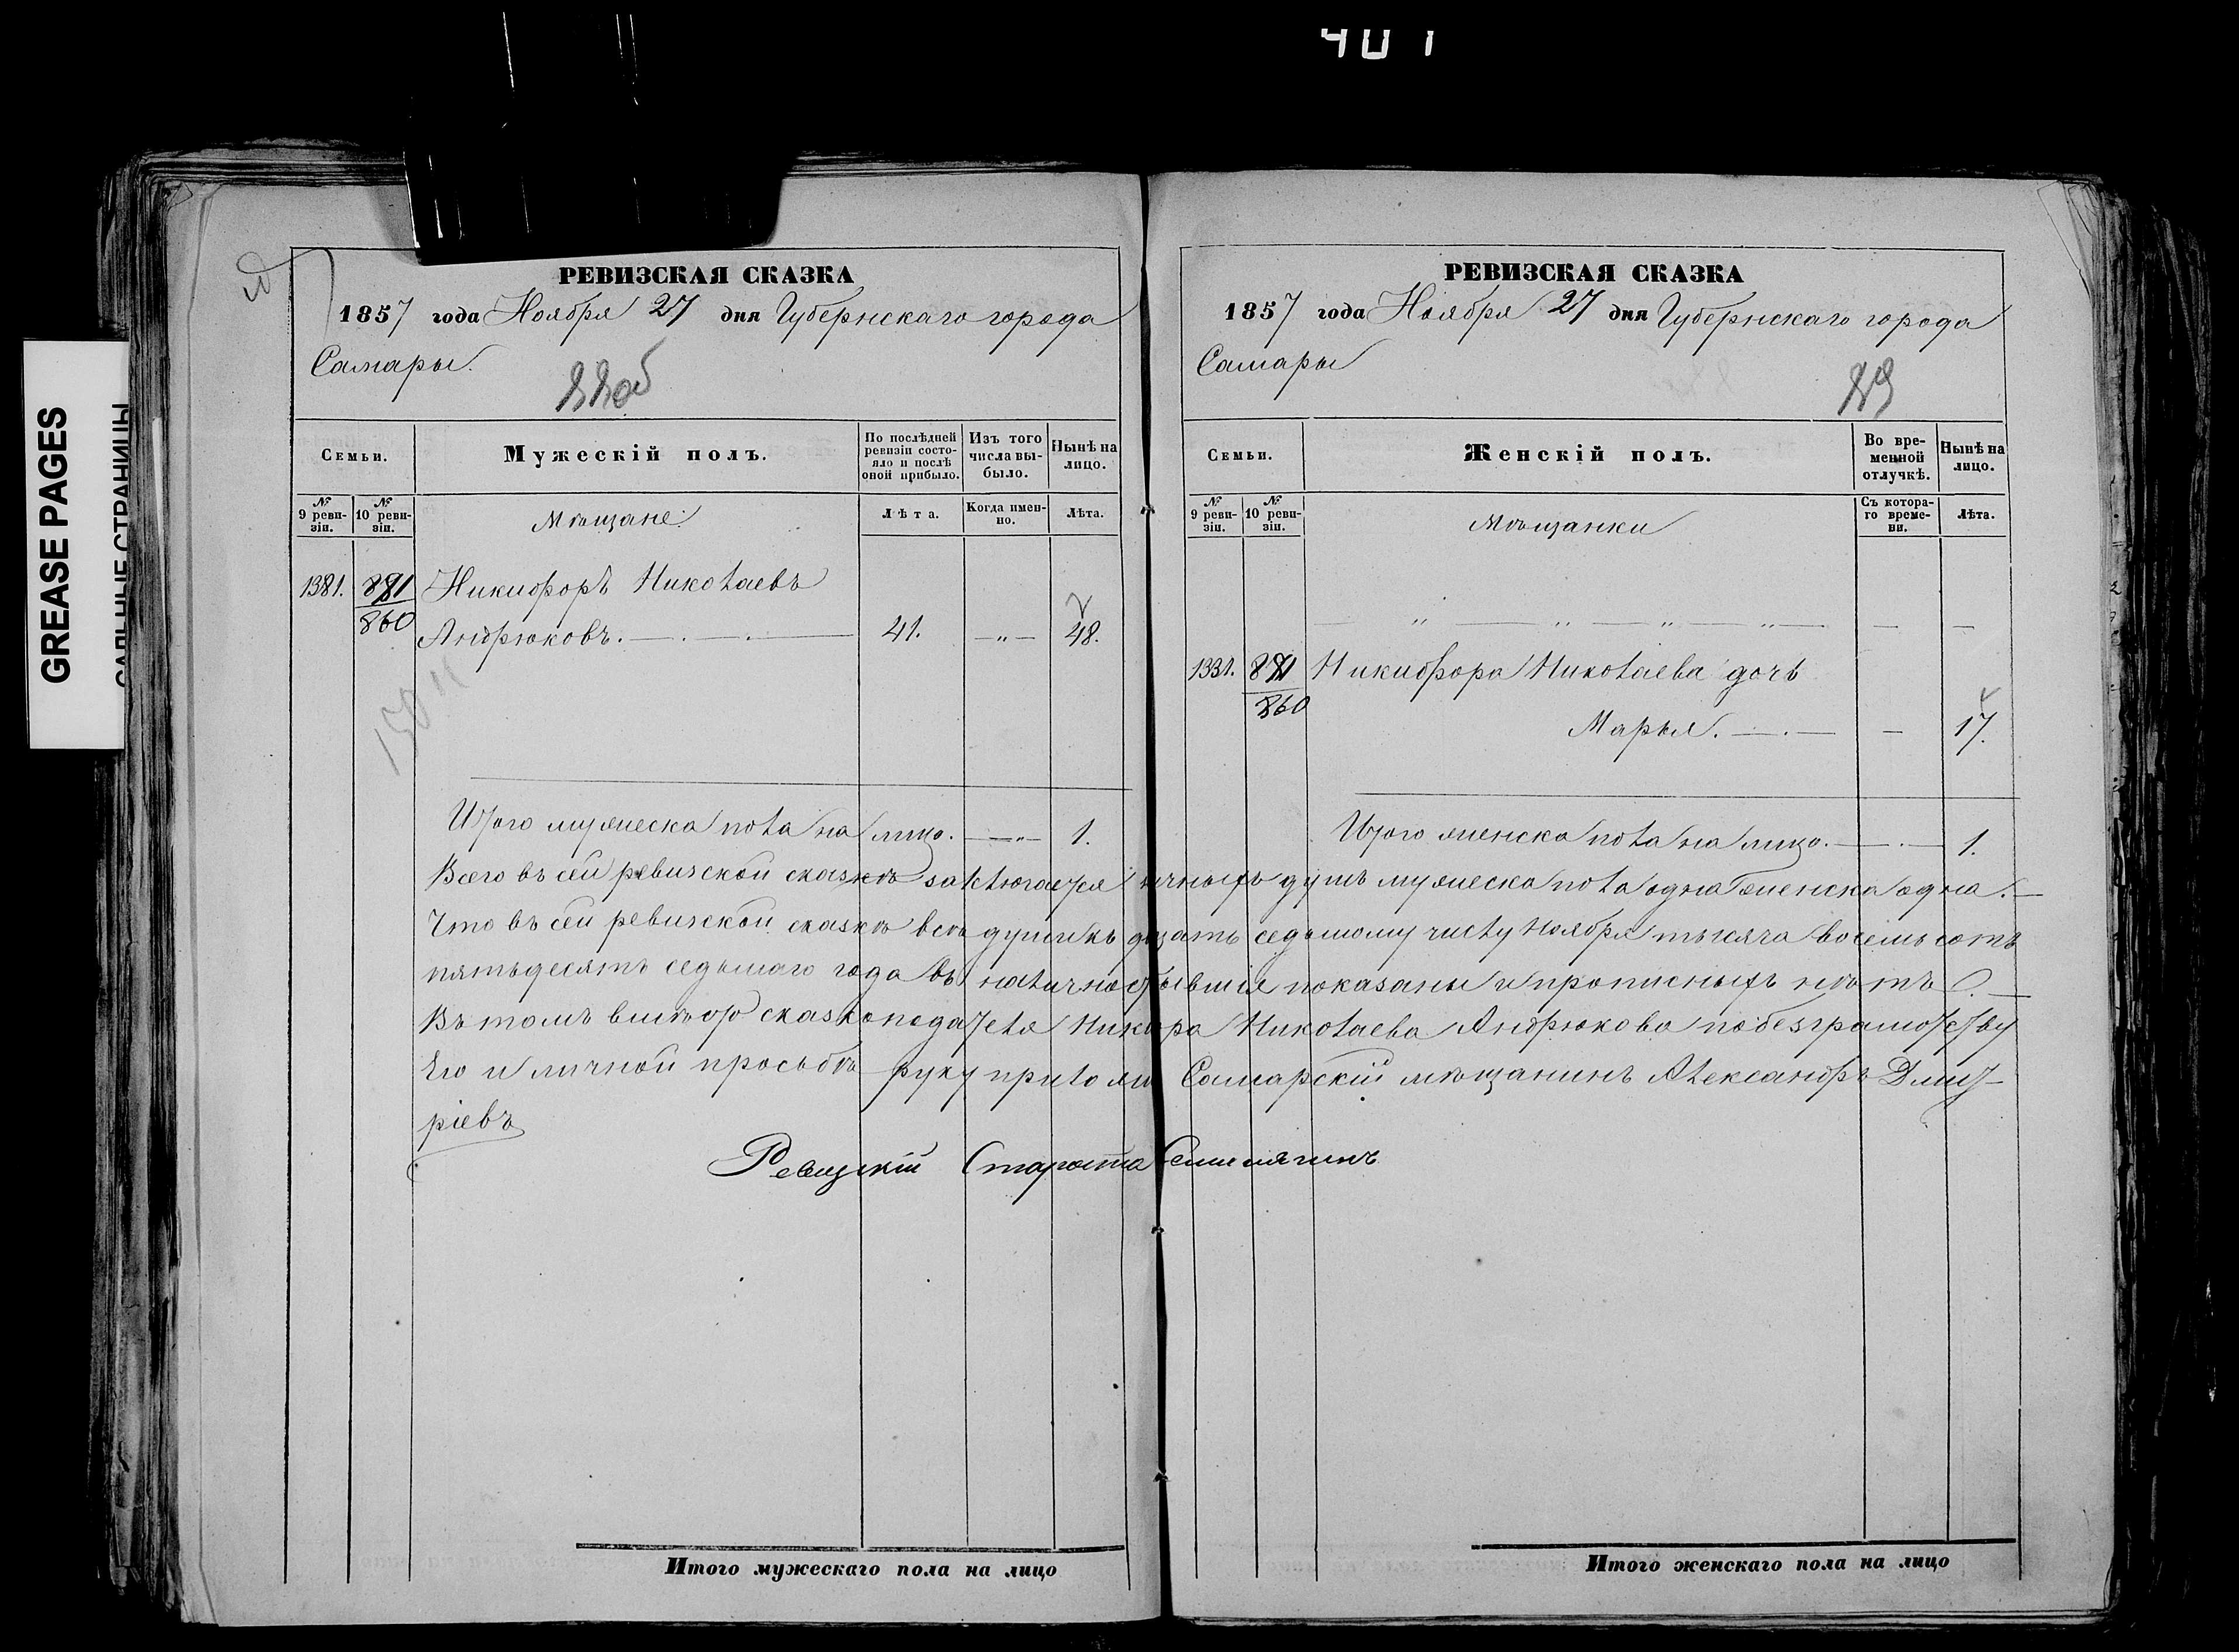 401
GREASE PAGES
САЛЬНЫЕ СТРАНИЦЫ
РЕВИЗСКАЯ СКАЗКА
1857 года Ноября 27 дня Губернскаго города
Самары.
Семьи.
Мужескій полъ.
По послѣдней ревизіи состояло и послѣ оной прибыло.
Изъ того числа выбыло.
Нынѣ на лицо.
№ 9 ревизіи.
№ 10 ревизіи.
Мѣщане:
Лѣта.
Когда именно.
Лѣта.
1381. Никифоръ Николаевъ
860 Андрюковъ. 41. — „ — 48.
Итого мужеска пола на лицо. — „ — 1.
РЕВИЗСКАЯ СКАЗКА
1857 года Ноября 27 дня Губернскаго города
Самары
89
Семьи.
Женскій полъ.
Во временной отлучкѣ.
Нынѣ на лицо.
№ 9 ревизіи.
№ 10 ревизіи.
Мѣщанки
Съ котораго времени.
Лѣта.
— „ — „ — „ — „ — — —
1331. Никифора Николаева дочь
860 Марья. — . — — 17.
Итого женска пола на лицо. — . — 1.
Всего въ сей ревизской сказкѣ заключается личныхъ душъ мужеска пола одна женска одна. —
Что въ сей ревизской сказкѣ всѣ души къ двацать седьмому числу Ноября тысяча восемь сотъ
пятьдесятъ седьмаго года въ наличности бывшія показаны и прописныхъ нѣтъ. —
Въ томъ вмѣсто сказкоподателя Никифора Николаева Андрюкова по безграмотству
Его и личной просьбѣ руку приложилъ Самарскій мѣщанинъ Александръ Дмит-
ріевъ
Ревизскій Староста
Итого мужескаго пола на лицо
Итого женскаго пола на лицо